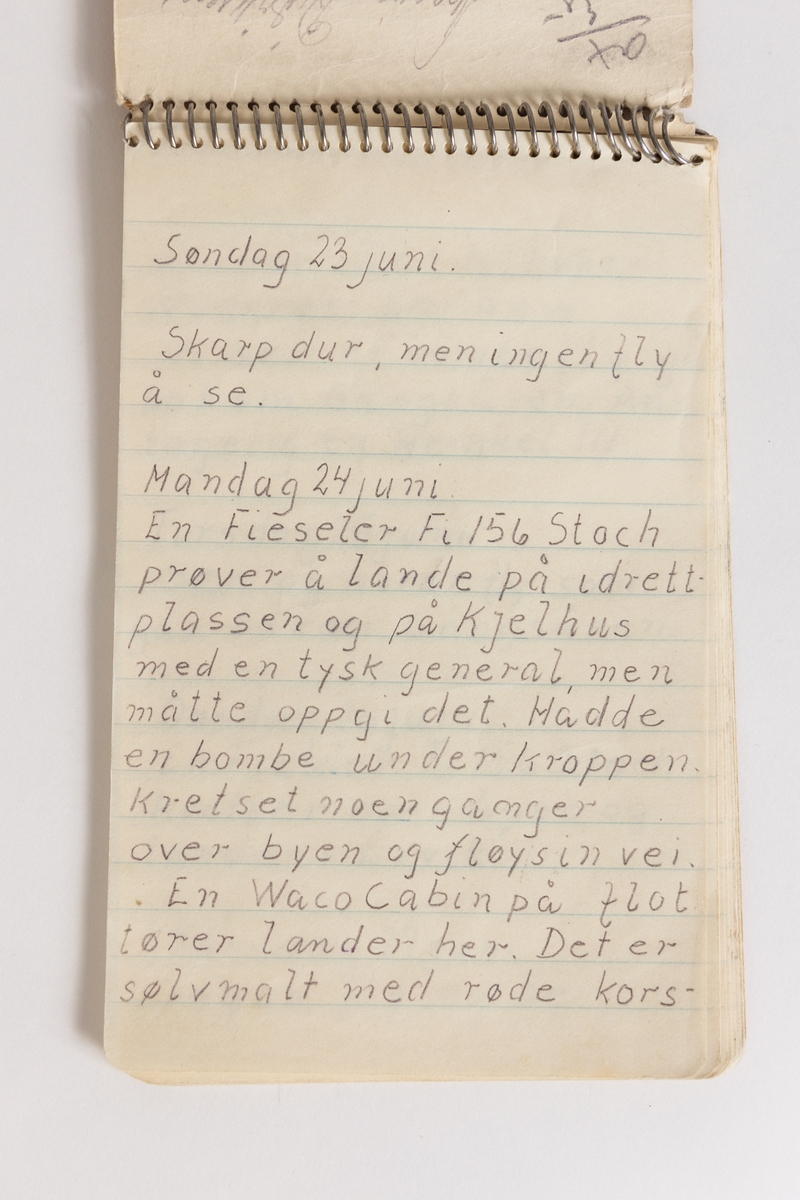 Søndag 23 juni.
Skarp dur, men ingen fly
å se.
Mandag 24 juni.
En Fieseler Fi 156 Stoch
prøver å lande på idrett-
plassen og på Kjelhus
med en tysk general, men
måtte oppgi det. Hadde
en bombe under kroppen.
Kretset noen ganger
over byen og fløy sin vei.
. En Waco Cabin på flot
tører lander her. Det er
sølvmalt med røde kors-